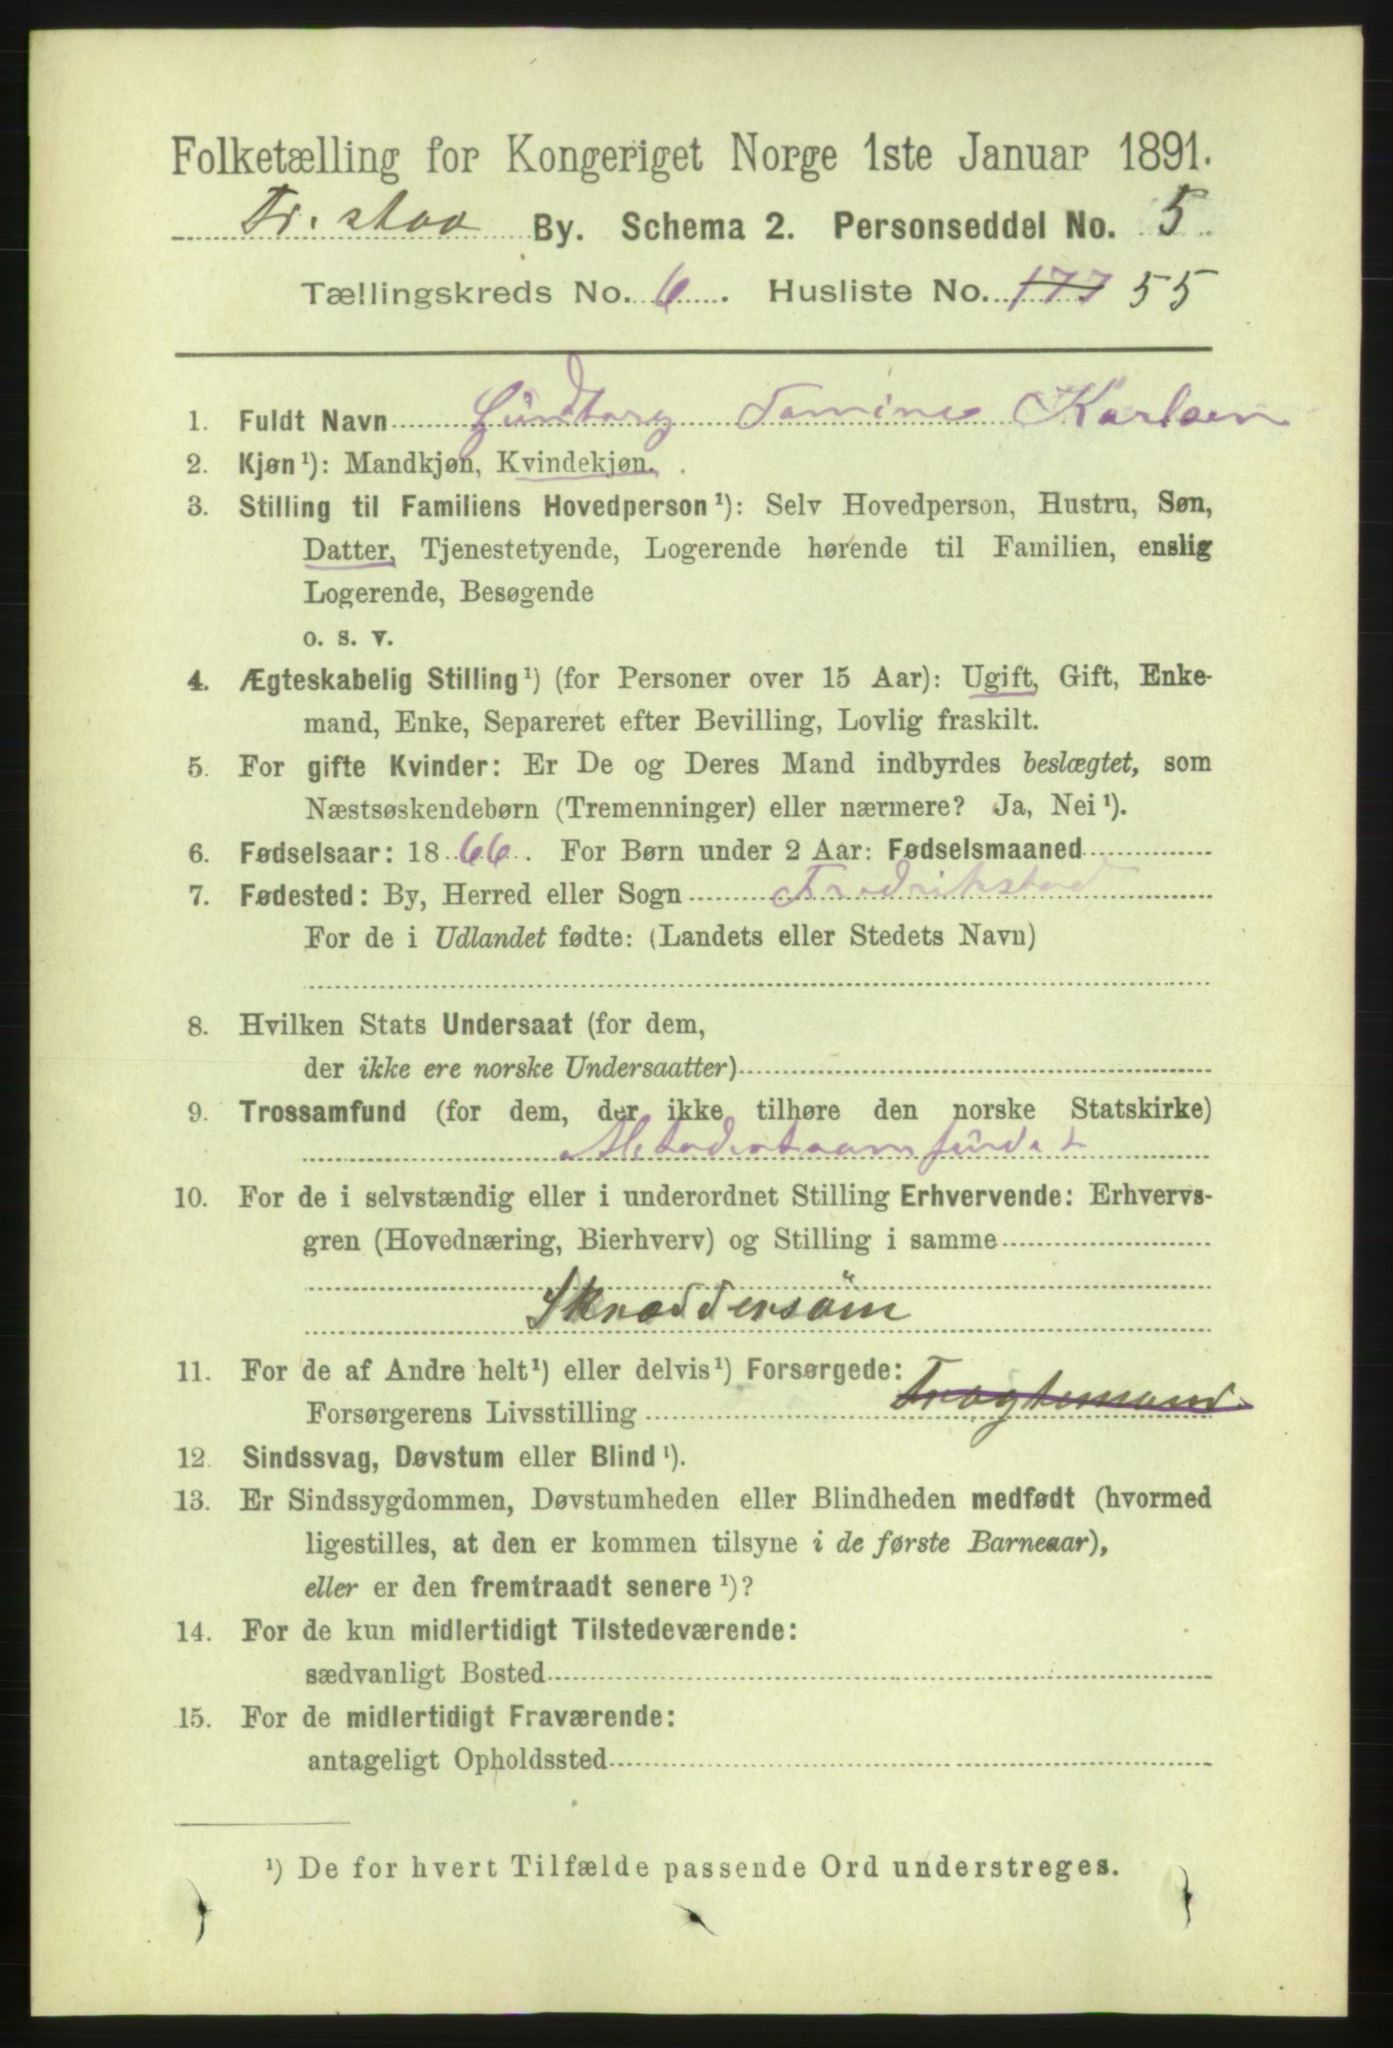 Folketælling for Kongeriget Norge 1ste Januar 1891.
Fr. stad By. Schema 2. Personseddel No. 5
Tællingskreds No. 6. Husliste No. 177 55
1. Fuldt Navn Karlsen
2. Kjøn¹): Mandkjøn, Kvindekjøn.
3. Stilling til Familiens Hovedperson¹): Selv Hovedperson, Hustru, Søn,
Datter, Tjenestetyende, Logerende hørende til Familien, enslig
Logerende, Besøgende
o. s. v.
4. Ægteskabelig Stilling¹) (for Personer over 15 Aar): Ugift, Gift, Enke-
mand, Enke, Separeret efter Bevilling, Lovlig fraskilt.
5. For gifte Kvinder: Er De og Deres Mand indbyrdes beslægtet, som
Næstsøskendebørn (Tremenninger) eller nærmere? Ja, Nei¹).
6. Fødselsaar: 1866. For Børn under 2 Aar: Fødselsmaaned
7. Fødested: By, Herred eller Sogn Fredrikstad
For de i Udlandet fødte: (Landets eller Stedets Navn)
8. Hvilken Stats Undersaat (for dem,
der ikke ere norske Undersaatter)
9. Trossamfund (for dem, der ikke tilhøre den norske Statskirke)
Metodistsamfundet
10. For de i selvstændig eller i underordnet Stilling Erhvervende: Erhvervs-
gren (Hovednæring, Bierhverv) og Stilling i samme
Skræddersöm
11. For de af Andre helt¹) eller delvis¹) Forsørgede:
Forsørgerens Livsstilling Fragtemand
12. Sindssvag, Døvstum eller Blind¹).
13. Er Sindssygdommen, Døvstumheden eller Blindheden medfødt (hvormed
ligestilles, at den er kommen tilsyne i de første Barneaar),
eller er den fremtraadt senere¹)?
14. For de kun midlertidigt Tilstedeværende:
sædvanligt Bosted
15. For de midlertidigt Fraværende:
antageligt Opholdssted
¹) De for hvert Tilfælde passende Ord understreges.